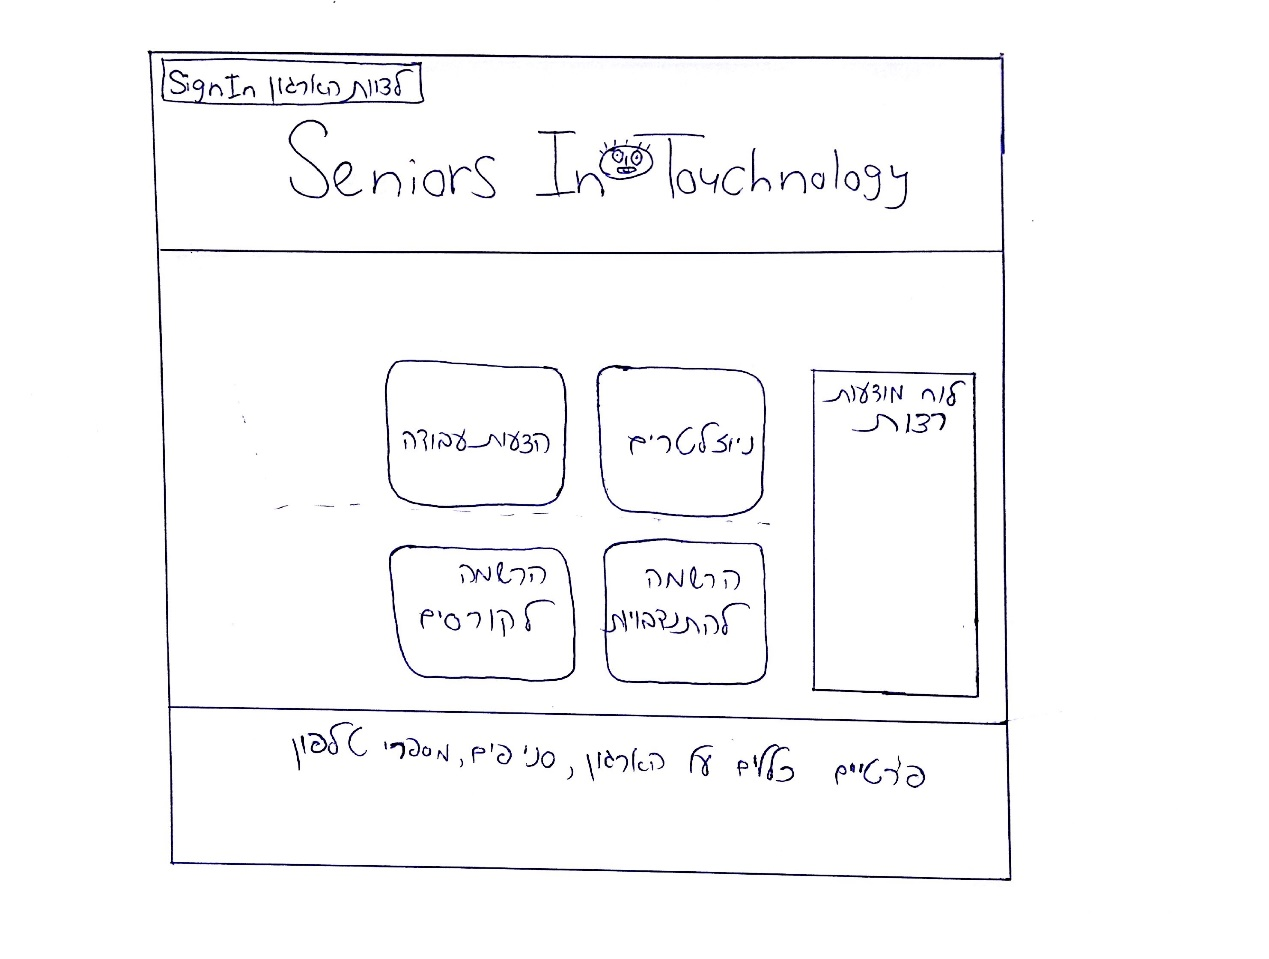 Sign In לצוות הארגון
Seniors In Touchnology
לוח מודעות
רצות
ניוזלטרים
הצעות עבודה
הרשמה
להתנדבויות
הרשמה
לקורסים
פרטיים כללים על הארגון, סניפים, מספרי טלפון